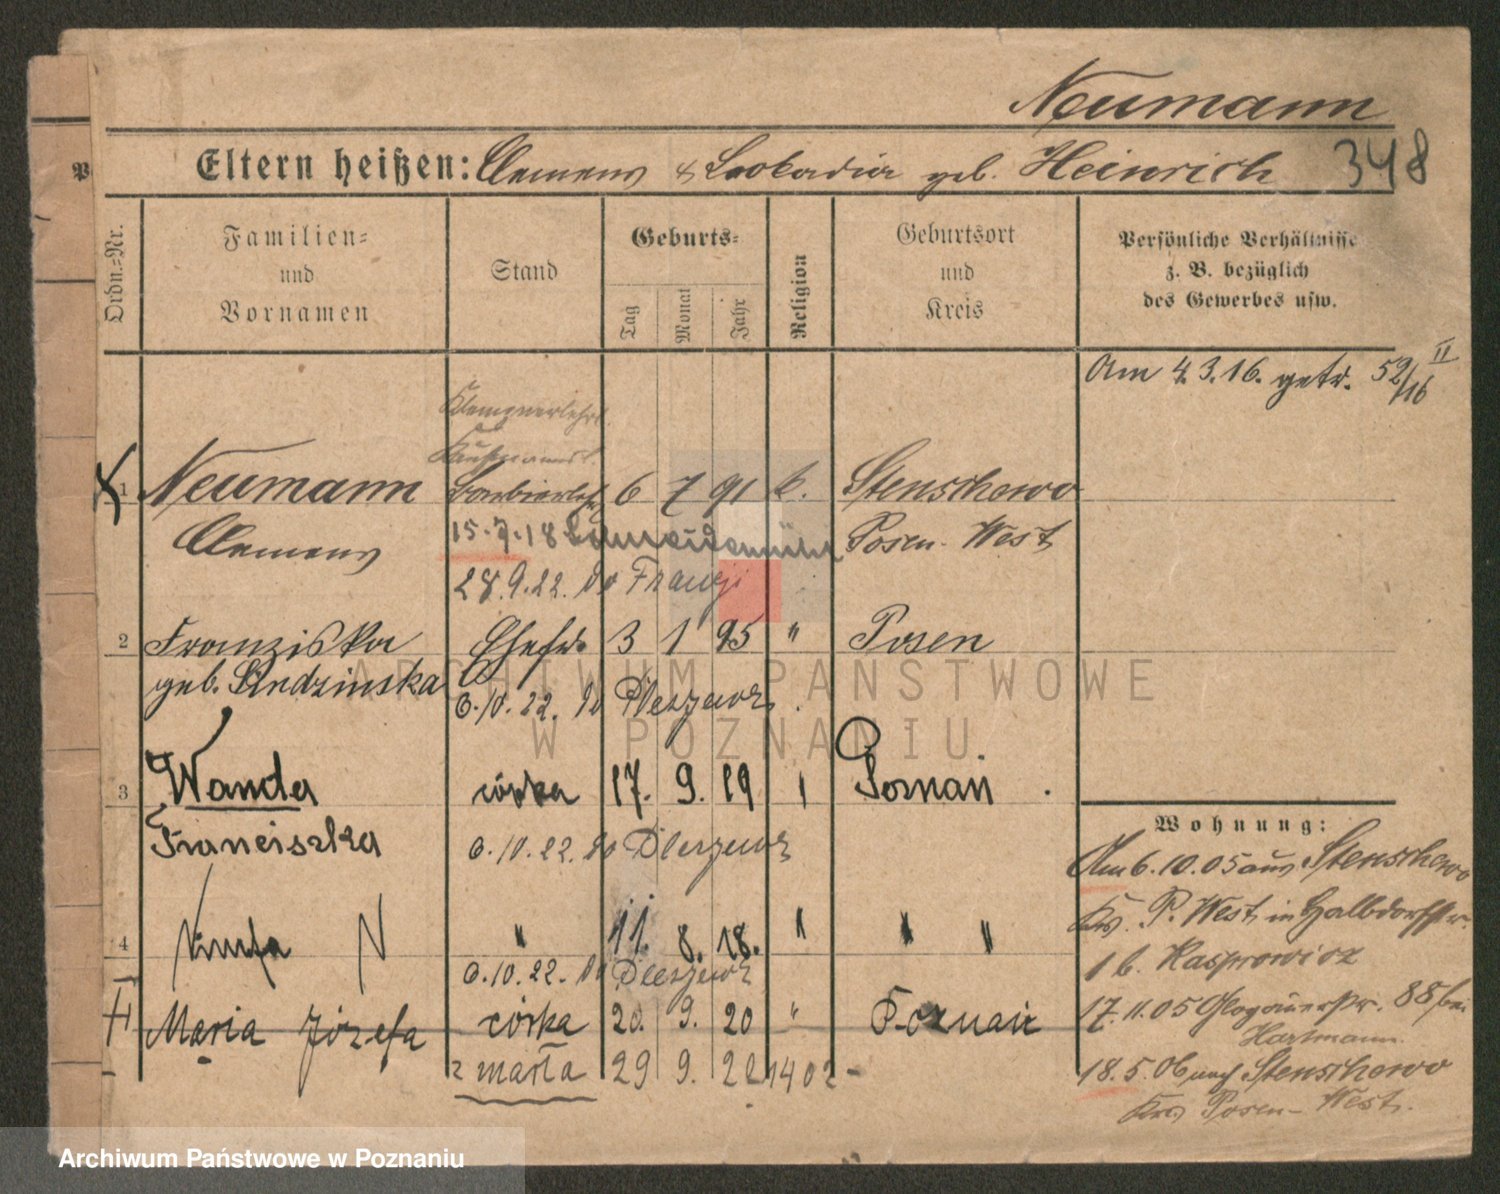 Neumann
Eltern heißen: Clemens & Leokadia geb. Heinrich 348
Ordn.-Nr.
Familien-
und
Vornamen
Stand
Geburts-
Tag Monat Jahr
Religion
Geburtsort
und
Kreis
Persönliche Verhältnisse
z. B. bezüglich
des Gewerbes usw.
Am 4.3.16. getr. 52/16 II
Klempnerlehrl.
1 Neumann Barbierlehrl. 6 7 91 k. Stenschewo
Clemens 15.7.18 Schneidemühl Posen-West
28.9.22. do Francji
2 Franziska Ehefr. 3 1 95 " Posen
geb. 6.10.22. do Pleszewa
3 Wanda córka 17. 9. 19 Poznań
Franciszka 6.10.22. do Pleszewa
4 N " 11. 8. 18. " " "
6.10.22. do Pleszewa
Maria Józefa córka 20. 9. 20 " Poznań
zmarła 29 9. 22 1402
Wohnung:
Am 6.10.05 aus Stenschewo
Krs. P. West in Halbdorfstr.
1 b. Kasprowicz
17.11.05 Glogauerstr. 88 bei
Hartmann.
18.5.06 nach Stenschewo
Krs Posen-West.
ARCHIWUM PAŃSTWOWE
W POZNANIU
Archiwum Państwowe w Poznaniu